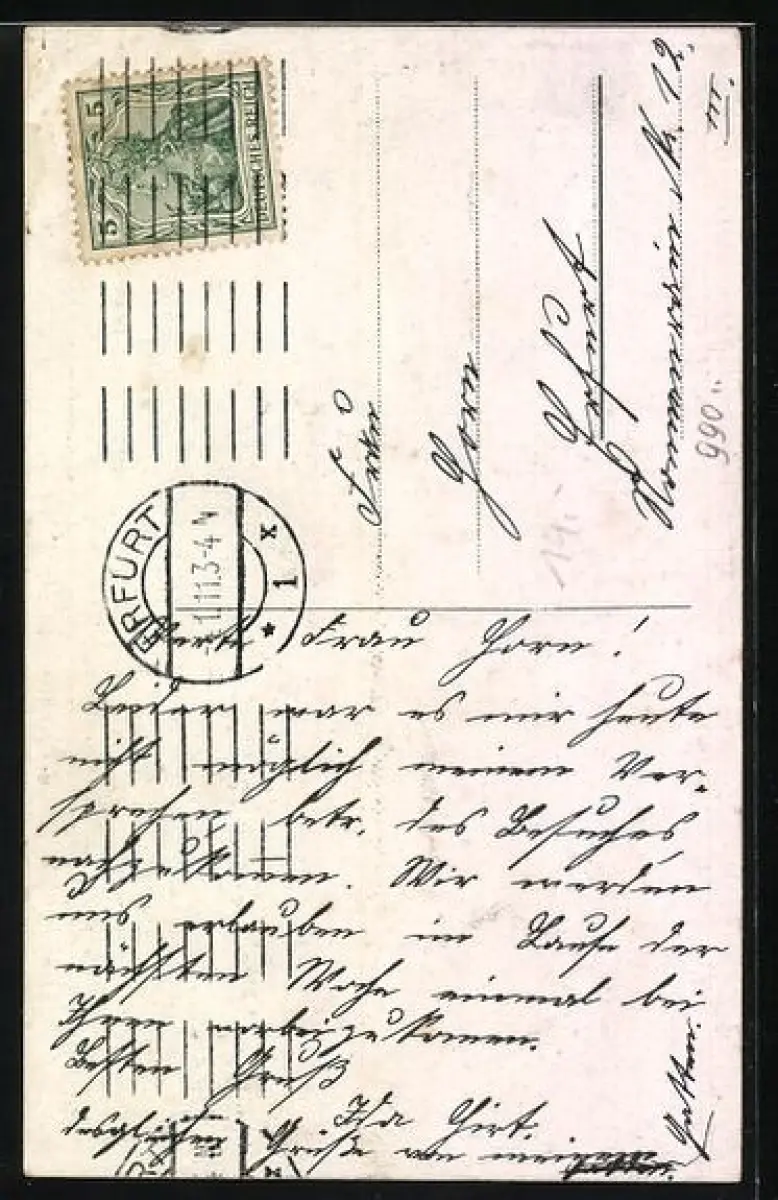 5 5
DEUTSCHES REICH
ERFURT
1.11.13-4N
* 1 x
Frau
Horn
Erfurt
Nonnenrain Nr. 12.
III.
990..
14.-
Werte Frau Horn!
Leider war es mir heute
nicht möglich meinem Ver-
sprechen betr. des Besuches
nachzukommen. Wir werden
uns erlauben im Laufe der
nächsten Woche einmal bei
Ihnen vorbeizukommen.
Besten Gruß
Ida Hirt.
desgleichen Grüße von meinem
Gatten.